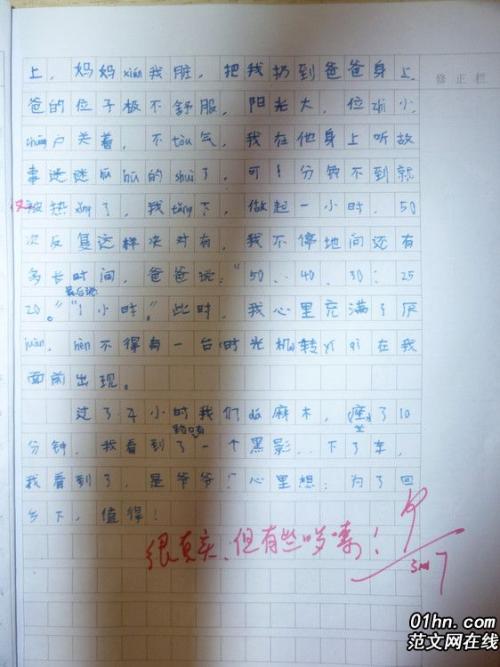 上，妈妈xián我脏，把我扔到爸爸身上，
修正栏
爸的位子极不舒服，阳光大，位zhi小，
chuāng户关着，不tòu气，我在他身上听故
事迷迷hū hū的shuì了，可1分钟不到就
又被热xǐng了，我tǎng下，做起一小时，50
次反复这样决对有，我不停地间还有
多长时间，爸爸说："50、40、30；25
最后说
20。""1小时。"此时，我心里充满了厌
juàn，hèn不得有一台时光机转yí qì在我
面前出现。
过了4小时我们都麻木，座了10
分钟，我看到了一个黑影，下了车，
我看到了，是爷爷！心里想：为了回
乡下，值得！
很真实，但有些啰嗦！
01hn.com
范文网在线